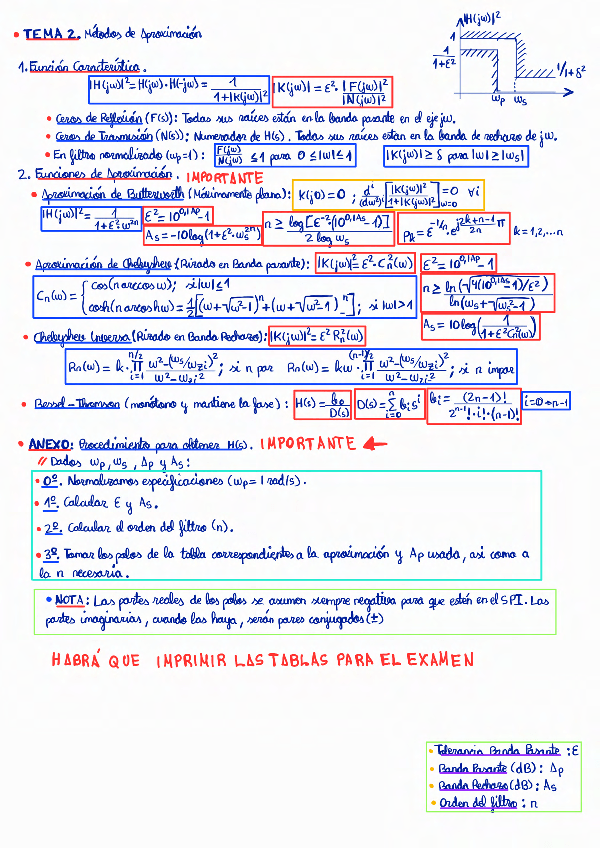 • TEMA 2. Métodos de Aproximación
|H(jω)|²
1
1/1+ε²
1/1+δ²
ωp ωs
1. Función Característica.
|H(jω)|² = H(jω)·H(-jω) = 1/(1+|K(jω)|²) |K(jω)| = ε²·|F(jω)|²/|N(jω)|²
• Ceros de Reflexión (F(s)): Todas sus raíces están en la banda pasante en el eje jω.
• Ceros de Trasmisión (N(s)): Numerador de H(s). Todas sus raíces estan en la banda de rechazo de jω.
• En filtro normalizado (ωp=1): F(jω)/N(jω) ≤ 1 para 0 ≤ |ω| ≤ 1 |K(jω)| ≥ δ para |ω| ≥ |ωs|
2. Funciones de Aproximación. IMPORTANTE
• Aproximación de Butterworth (Máximamente plana): K(j0) = 0 ; dⁱ/(dω²)ⁱ [|K(jω)|²/1+|K(jω)|²]ω=0 = 0 ∀i
|H(jω)|² = 1/(1+ε²·ω²ⁿ) ε² = 10^0,1Ap - 1 As = -10log(1+ε²·ωs²ⁿ) n ≥ log[ε⁻²·(10^0,1As - 1)]/(2 log ωs) Pk = ε^(-1/n)·e^(j(2k+n-1)/2n π) k=1,2,...n
• Aproximación de Chebyshev (Rizado en Banda pasante): |K(jω)|² = ε²·Cn²(ω) ε² = 10^0,1Ap - 1
Cn(ω) = { cos(n arccos ω); si |ω| ≤ 1
cosh(n arcosh ω) = 1/2[(ω+√ω²-1)ⁿ+(ω+√ω²-1)⁻ⁿ]; si |ω|>1
n ≥ ln(√4(10^0,1As - 1)/ε²)/ln(ωs+√ωs²-1)
As = 10log(1/(1+ε²Cn²(ω)))
• Chebyshev Inversa (Rizado en Banda Rechazo): |K(jω)|² = ε² Rn²(ω)
Rn(ω) = k·∏(i=1, n/2) ω²-(ωs/ωzi)²/ω²-ωzi² ; si n par Rn(ω) = kω·∏(i=1, (n-1)/2) ω²-(ωs/ωzi)²/ω²-ωzi² ; si n impar
• Bessel-Thomson (monótono y mantiene la fase): H(s) = b0/D(s) D(s) = Σ(i=0, n) bi sⁱ bi = (2n-1)!/2ⁿ⁻ⁱ·i!·(n-i)! i=0÷n-1
• ANEXO: Procedimiento para obtener H(s). IMPORTANTE ←
// Dados ωp, ωs, Δp y As:
• 0º. Normalizamos especificaciones (ωp = 1 rad/s).
• 1º. Calcular ε y As.
• 2º. Calcular el orden del filtro (n).
• 3º. Tomar los polos de la tabla correspondientes a la aproximación y Ap usada, asi como a
la n necesaria.
• NOTA: Las partes reales de los polos se asumen siempre negativa para que estén en el SPI. Las
partes imaginarias, cuando las haya, serán pares conjugados (±)
HABRÁ QUE IMPRIMIR LAS TABLAS PARA EL EXAMEN
• Tolerancia Banda Pasante : ε
• Banda Pasante (dB): Δp
• Banda Rechazo (dB): As
• Orden del filtro : n